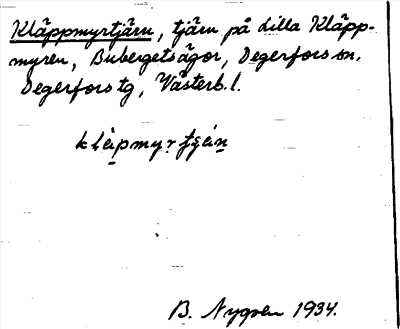 Kläppmyrtjärn, tjärn på Lilla Kläpp-
myren, Bubergets ägor, Degerfors sn.
Degerfors tg, Västerb. l.
B. Nygren 1934.